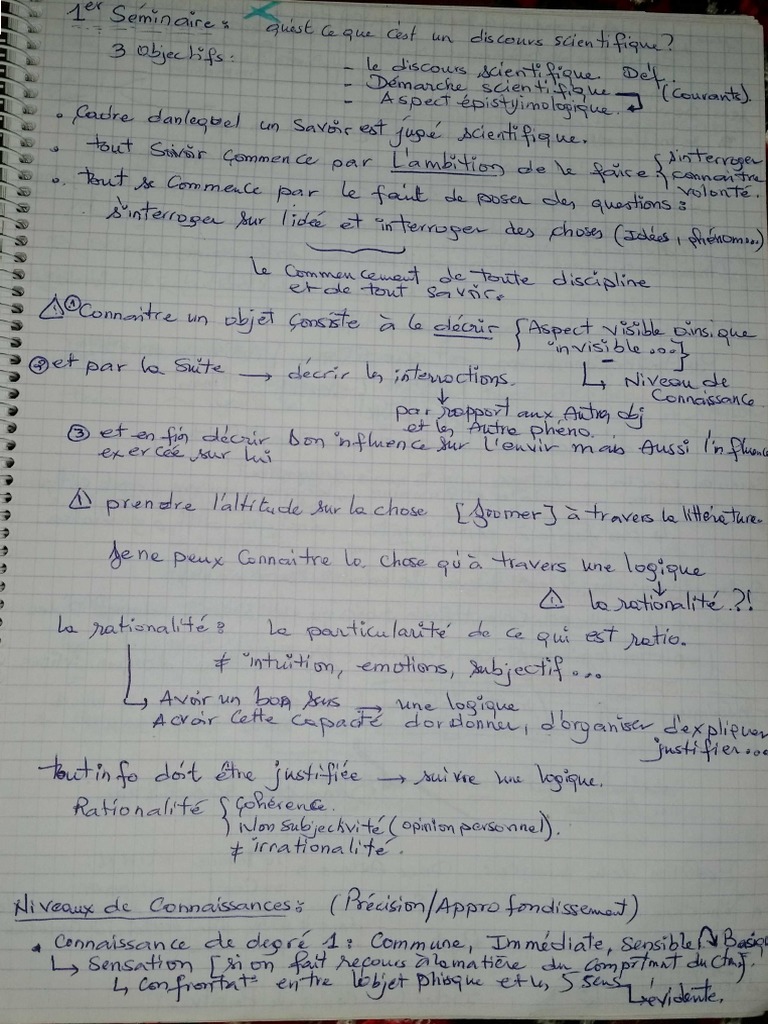 1er Séminaire : qu'est ce que c'est un discours scientifique ?
3 Objectifs : - le discours scientifique. Déf.
- Démarche scientifique (Courants).
- Aspect épistyimologique.
• Cadre danlequel un savoir est jugé scientifique.
• tout savoir commence par L'ambition de le faire { s'interroger
connaitre
volonté.
• tout se commence par le fait de poser des questions :
s'interroger sur l'idée et interroger des choses (Idées, phénom...)
le commencement de toute discipline
et de tout savoir.
⚠ ① Connaitre un objet consiste à le décrir { Aspect visible ainsi que
invisible ... }
② et par la suite → décrir les interractions. ↳ Niveau de
Connaissance
par rapport aux Autres obj
et les Autre phéno.
③ et en fin décrir son influence sur l'envir mais Aussi l'influence
exercée sur lui
⚠ prendre l'altitude sur la chose [zoomer] à travers la littérature.
Je ne peux connaitre la chose qu'à travers une logique
↓
⚠ la rationalité ?!
La rationalité : la particularité de ce qui est ratio.
≠ intuition, emotions, subjectif ...
↳ Avoir un bon sens → une logique
Avoir cette capacité d'ordonner, d'organiser d'expliquer
justifier...
tout info doit être justifiée → suivre une logique.
Rationalité { cohérence.
Non subjectivité (opinion personnel).
≠ irrationalité.
Niveaux de Connaissances : (Précision/Approfondissement)
• Connaissance de degré 1 : Commune, Immédiate, Sensible, Basique
↳ Sensation [si on fait recours à la matière du comptmt du
↳ confrontat° entre l'objet phisque et les 5 sens
↳ évidente.